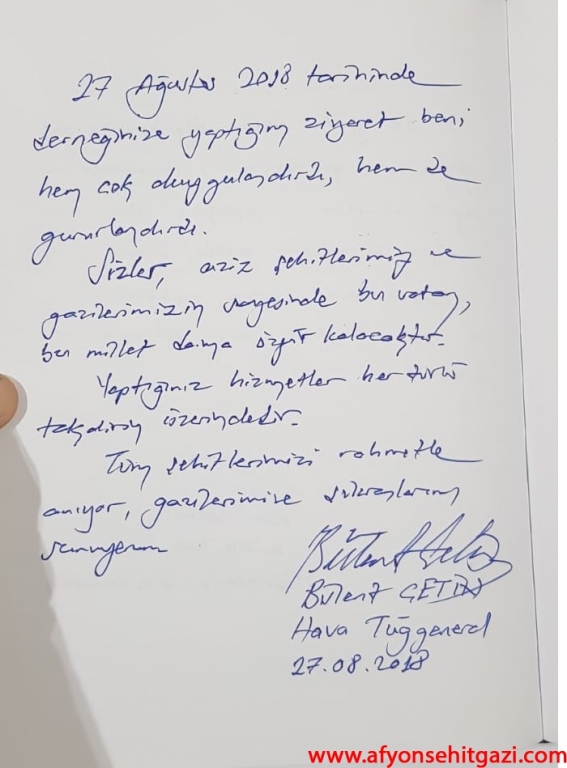 27 Ağustos 2018 tarihinde
derneğinize yaptığım ziyaret beni
hem çok duygulandırdı, hem de
gururlandırdı.
Sizler, aziz şehitlerimiz ve
gazilerimizin sayesinde bu vatan,
bu millet daima özgür kalacaktır.
Yaptığınız hizmetler her türlü
takdirin üzerindedir.
Tüm şehitlerimizi rahmetle
anıyor, gazilerimize şükranlarımı
sunuyorum
Bülent ÇETİN
Hava Tuğgeneral
27.08.2018
www.afyonsehitgazi.com